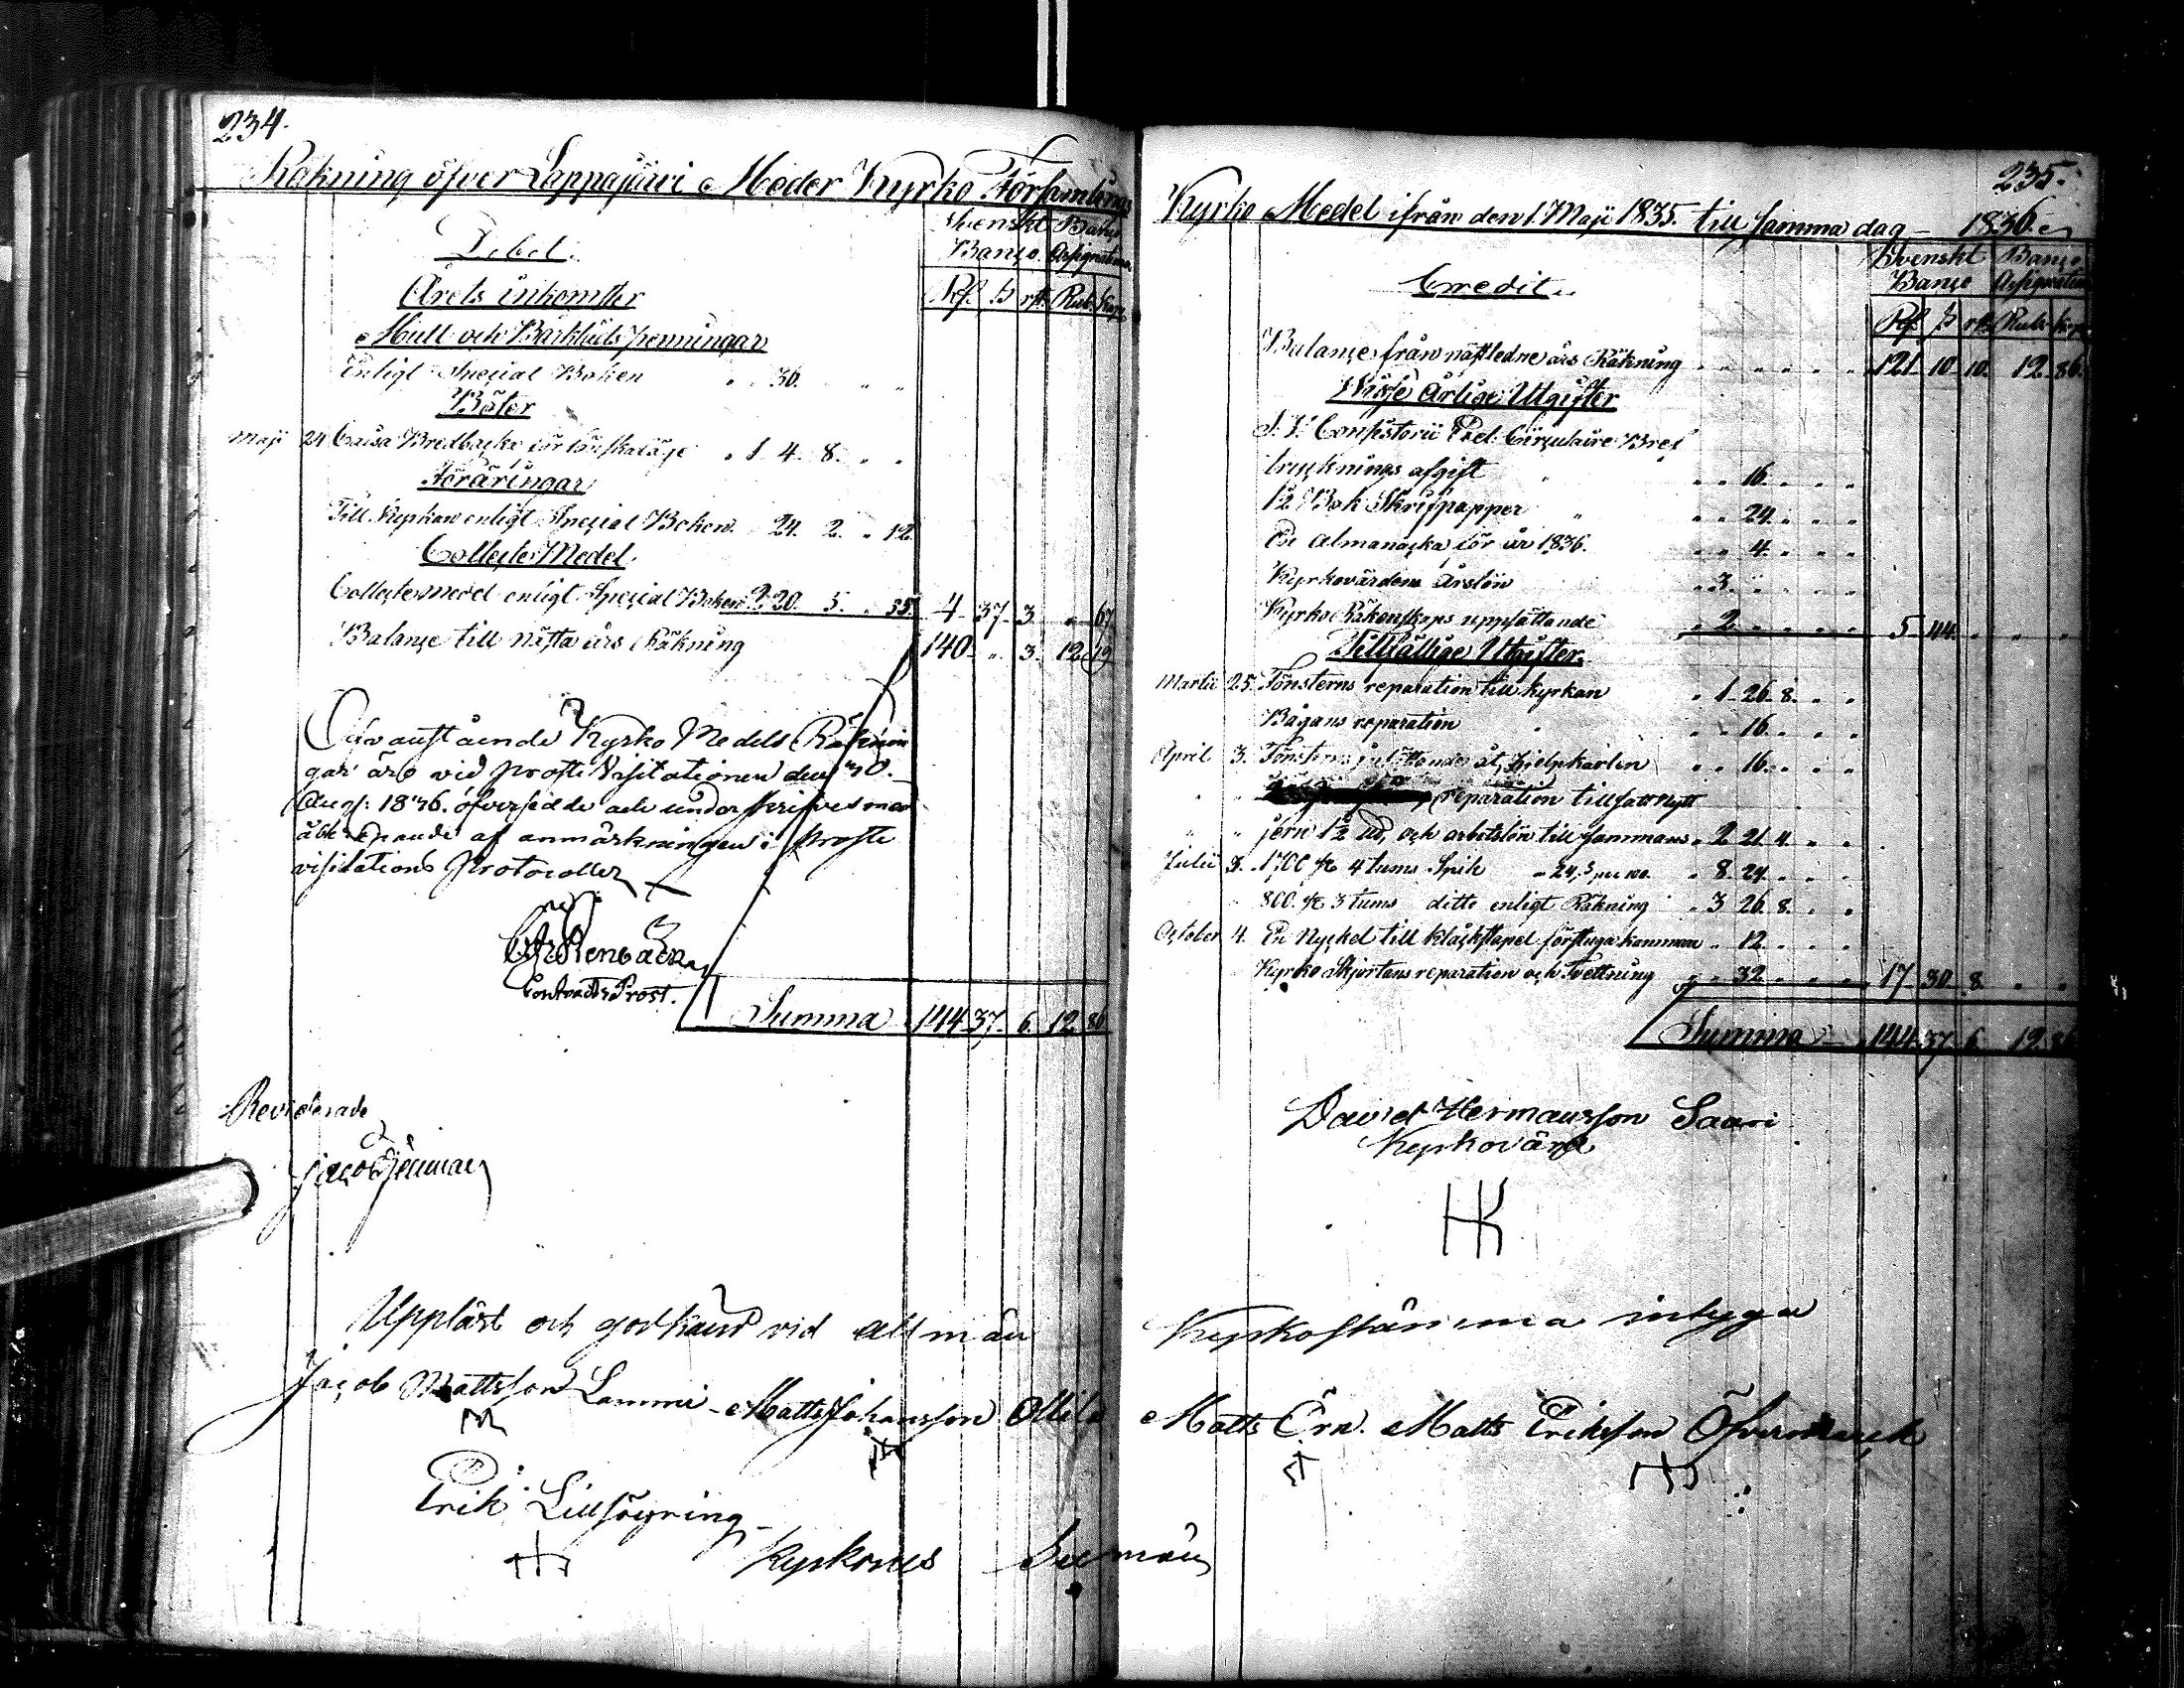 234.
Räkning öfver Lappajärvi Moder Kyrko Församlings
Svenskt Banco
Banco Assignationer
Debet.
Rd. ß rst. Rub. Kop.
Årets inkomster
Mull och Bårklädspenningar
Enligt Special Boken " 36. " "
Böter
Maji 24 Caisa Bredbacka för lönskaläge " 1 4. 8. " "
Föräringar
Till Kyrkan enligt Special Boken. " 24. 2. " 12.
Collecte Medel.
Collectemedel enligt Special Boken 2. 20. 5. " 55. 4 37 3 " 67
Balance till nästa års Räkning 140 " 3. 12 19
Ofvanstående Kyrko Medels Räknin
gar äro vid Prosten Visitationen den 30.
Aug: 1836. öfversedde och underskrifves med
åberopande af anmärkningen i Prosten
visitations Protocollet
Contracts Prost.
Summa 144 37 6. 12. 86
Reviderade
Uppläst och godkänd vid allmän
Jacob Mattsson Lammi Matts Johansson Ollila
Erik Lillsöyring
Kyrkones
235.
Kyrko Medel ifrån den 1. Maji 1835. till samma dag 1836.
Svenskt Banco
Banco Assignation
Credit.
Rd. ß rst. Rub. Kop.
Balance från nästledne års Räkning 121 10 10. 12 86.
Wisse Årlige Utgifter
S. V. Consistorii Eccl. Circulaire Bref
trycknings afgift " " 16. " " "
1/2 Bok Skrifpapper " " " 24. " " "
En Almanacka för år 1836. " " 4. " " "
Kyrkovärdens Årslön " 3. " " " "
Kyrko Räkenskaps uppsättande " 2 " " " " 5 44 " " "
Tillfällige Utgifter.
Martii 25. Fönsterns reparation till kyrkan " 1. 26. 8. " "
Bågans reparation " " " 16. " " "
April 3. Fönsterns åt hielpkarlen " " 16. " " "
" " reparation tillsatt Nytt
" " jern 1/2 ₶, och arbetslön till sammans " 2 21 4. " "
Julii 1700 st 4 tums Spik " 24 ß per 100. " 8. 24. " " "
" 800. st 3 tums ditto enligt Räkning " 3 26. 8. " "
October 4. En Nyckel till klåckstapel förstuga kammare " 12. " " "
Kyrko Skjortans reparation och Tvettning " " 32 " " " 17 30 8. " "
Summa 144 37 6. 12. 86
David Hermansson Saari
Kyrkovärd
HK
Kyrkostämma intyga
Matts Örn. Matts Eriksson Öfvermarck
Sexmän